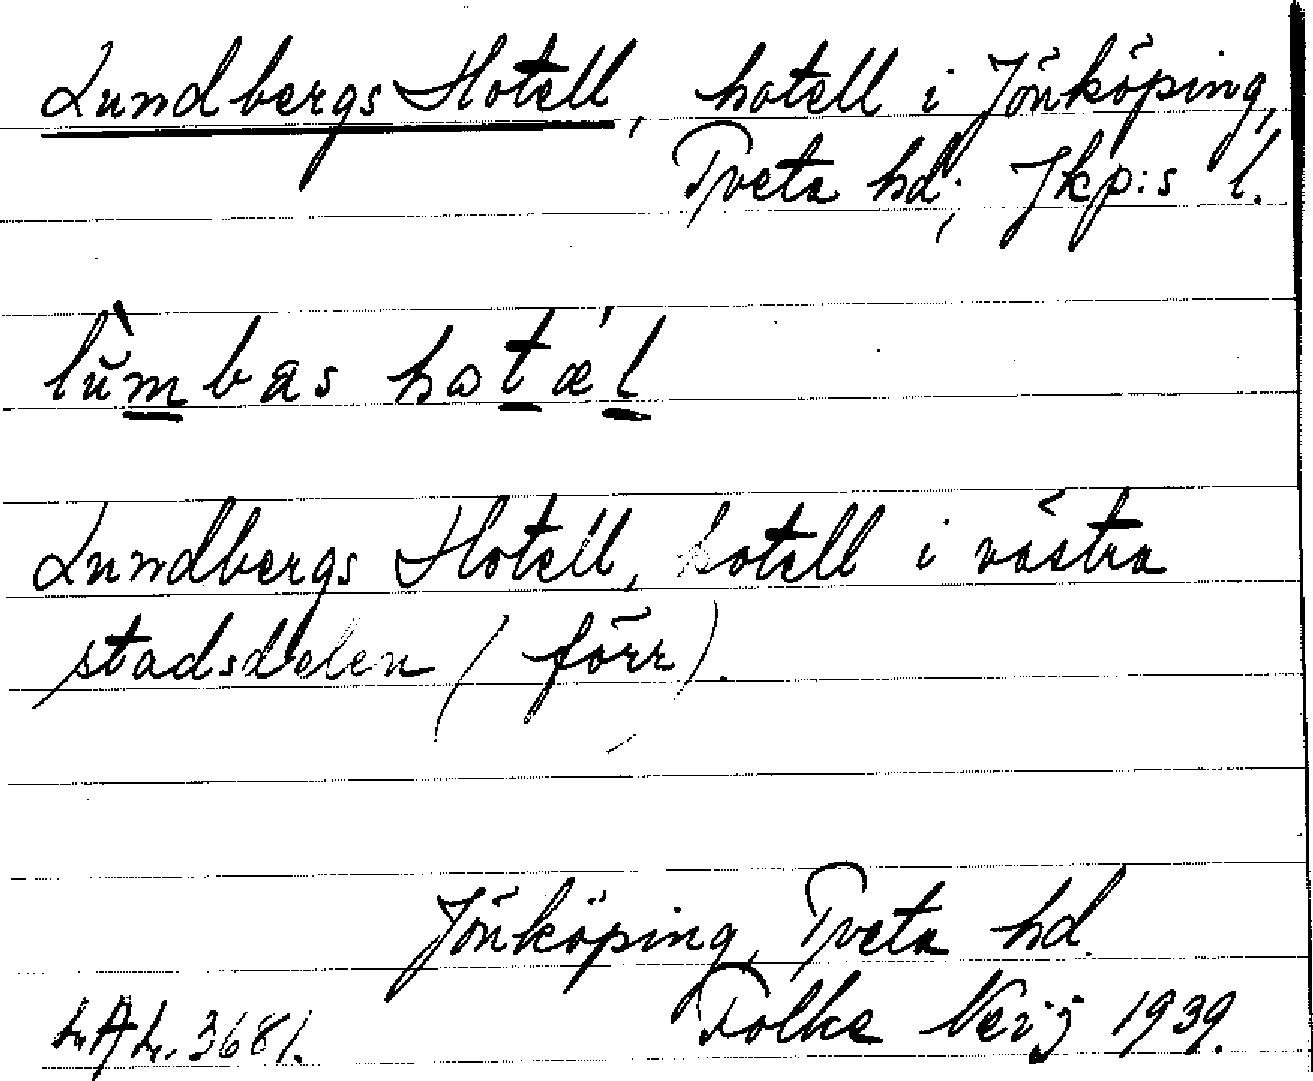 Lundbergs Hotell, hotell i Jönköping,
Tveta hd; Jkp:s l.
lùmbas hotæ´l
Lundbergs Hotell, hotell i västra
stadsdelen (förr).
Jönköping, Tveta hd.
Folke Neij 1939.
LAL. 3681.